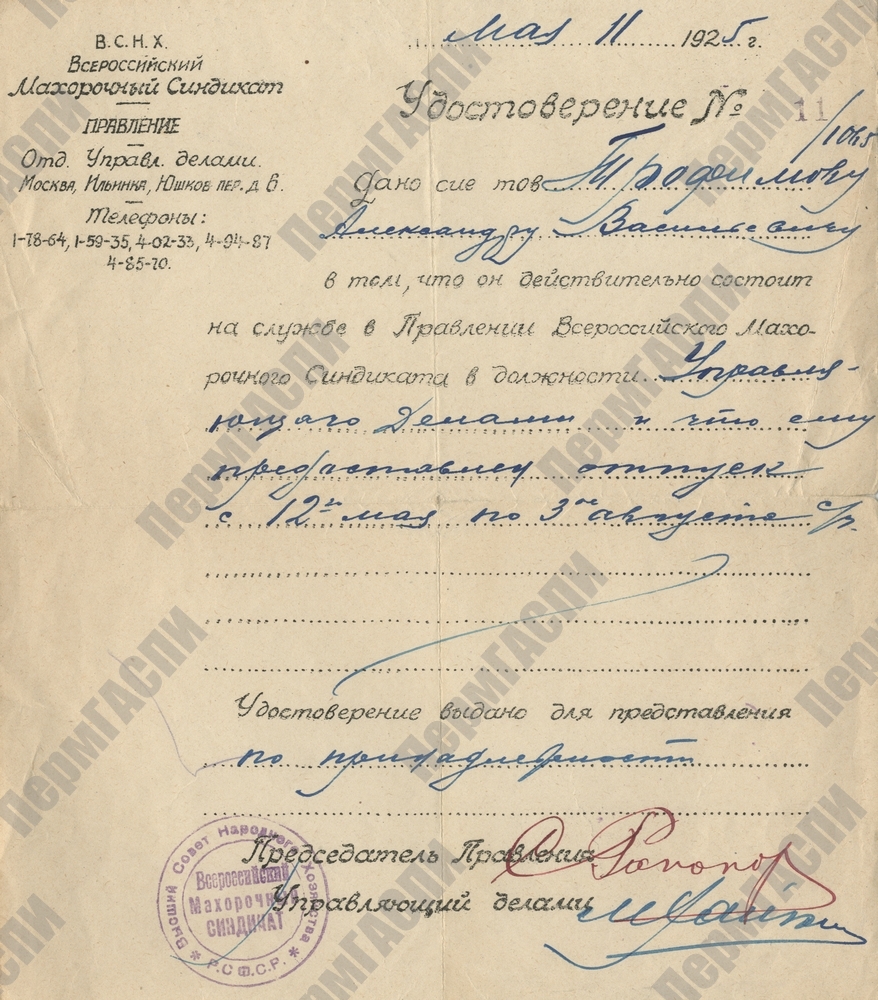 В.С.Н.Х.
Всероссийский
Махорочный Синдикат
Правление
Отд. Управл. делами.
Москва, Ильинка, Юшков пер. д. 6.
Телефоны:
1-78-64, 1-59-35, 4-02-33, 4-94-87
4-85-70.
Мая 11 1925 г.
Удостоверение № 11
/1065
Дано сие тов. Трофимову
Александру Васильевичу
в том, что он действительно состоит
на службе в Правлении Всероссийского Махо-
рочного Синдиката в должности Управля-
ющего Делами и что ему
предоставлен отпуск
с 12го мая по 3ое августа с/г.
Удостоверение выдано для представления
по принадлежности
Председатель Правления
Управляющий делами
Высший Совет Народного Хозяйства
Р.С.Ф.С.Р.
Всероссийский
Махорочный
Синдикат
ПермГАСПИ